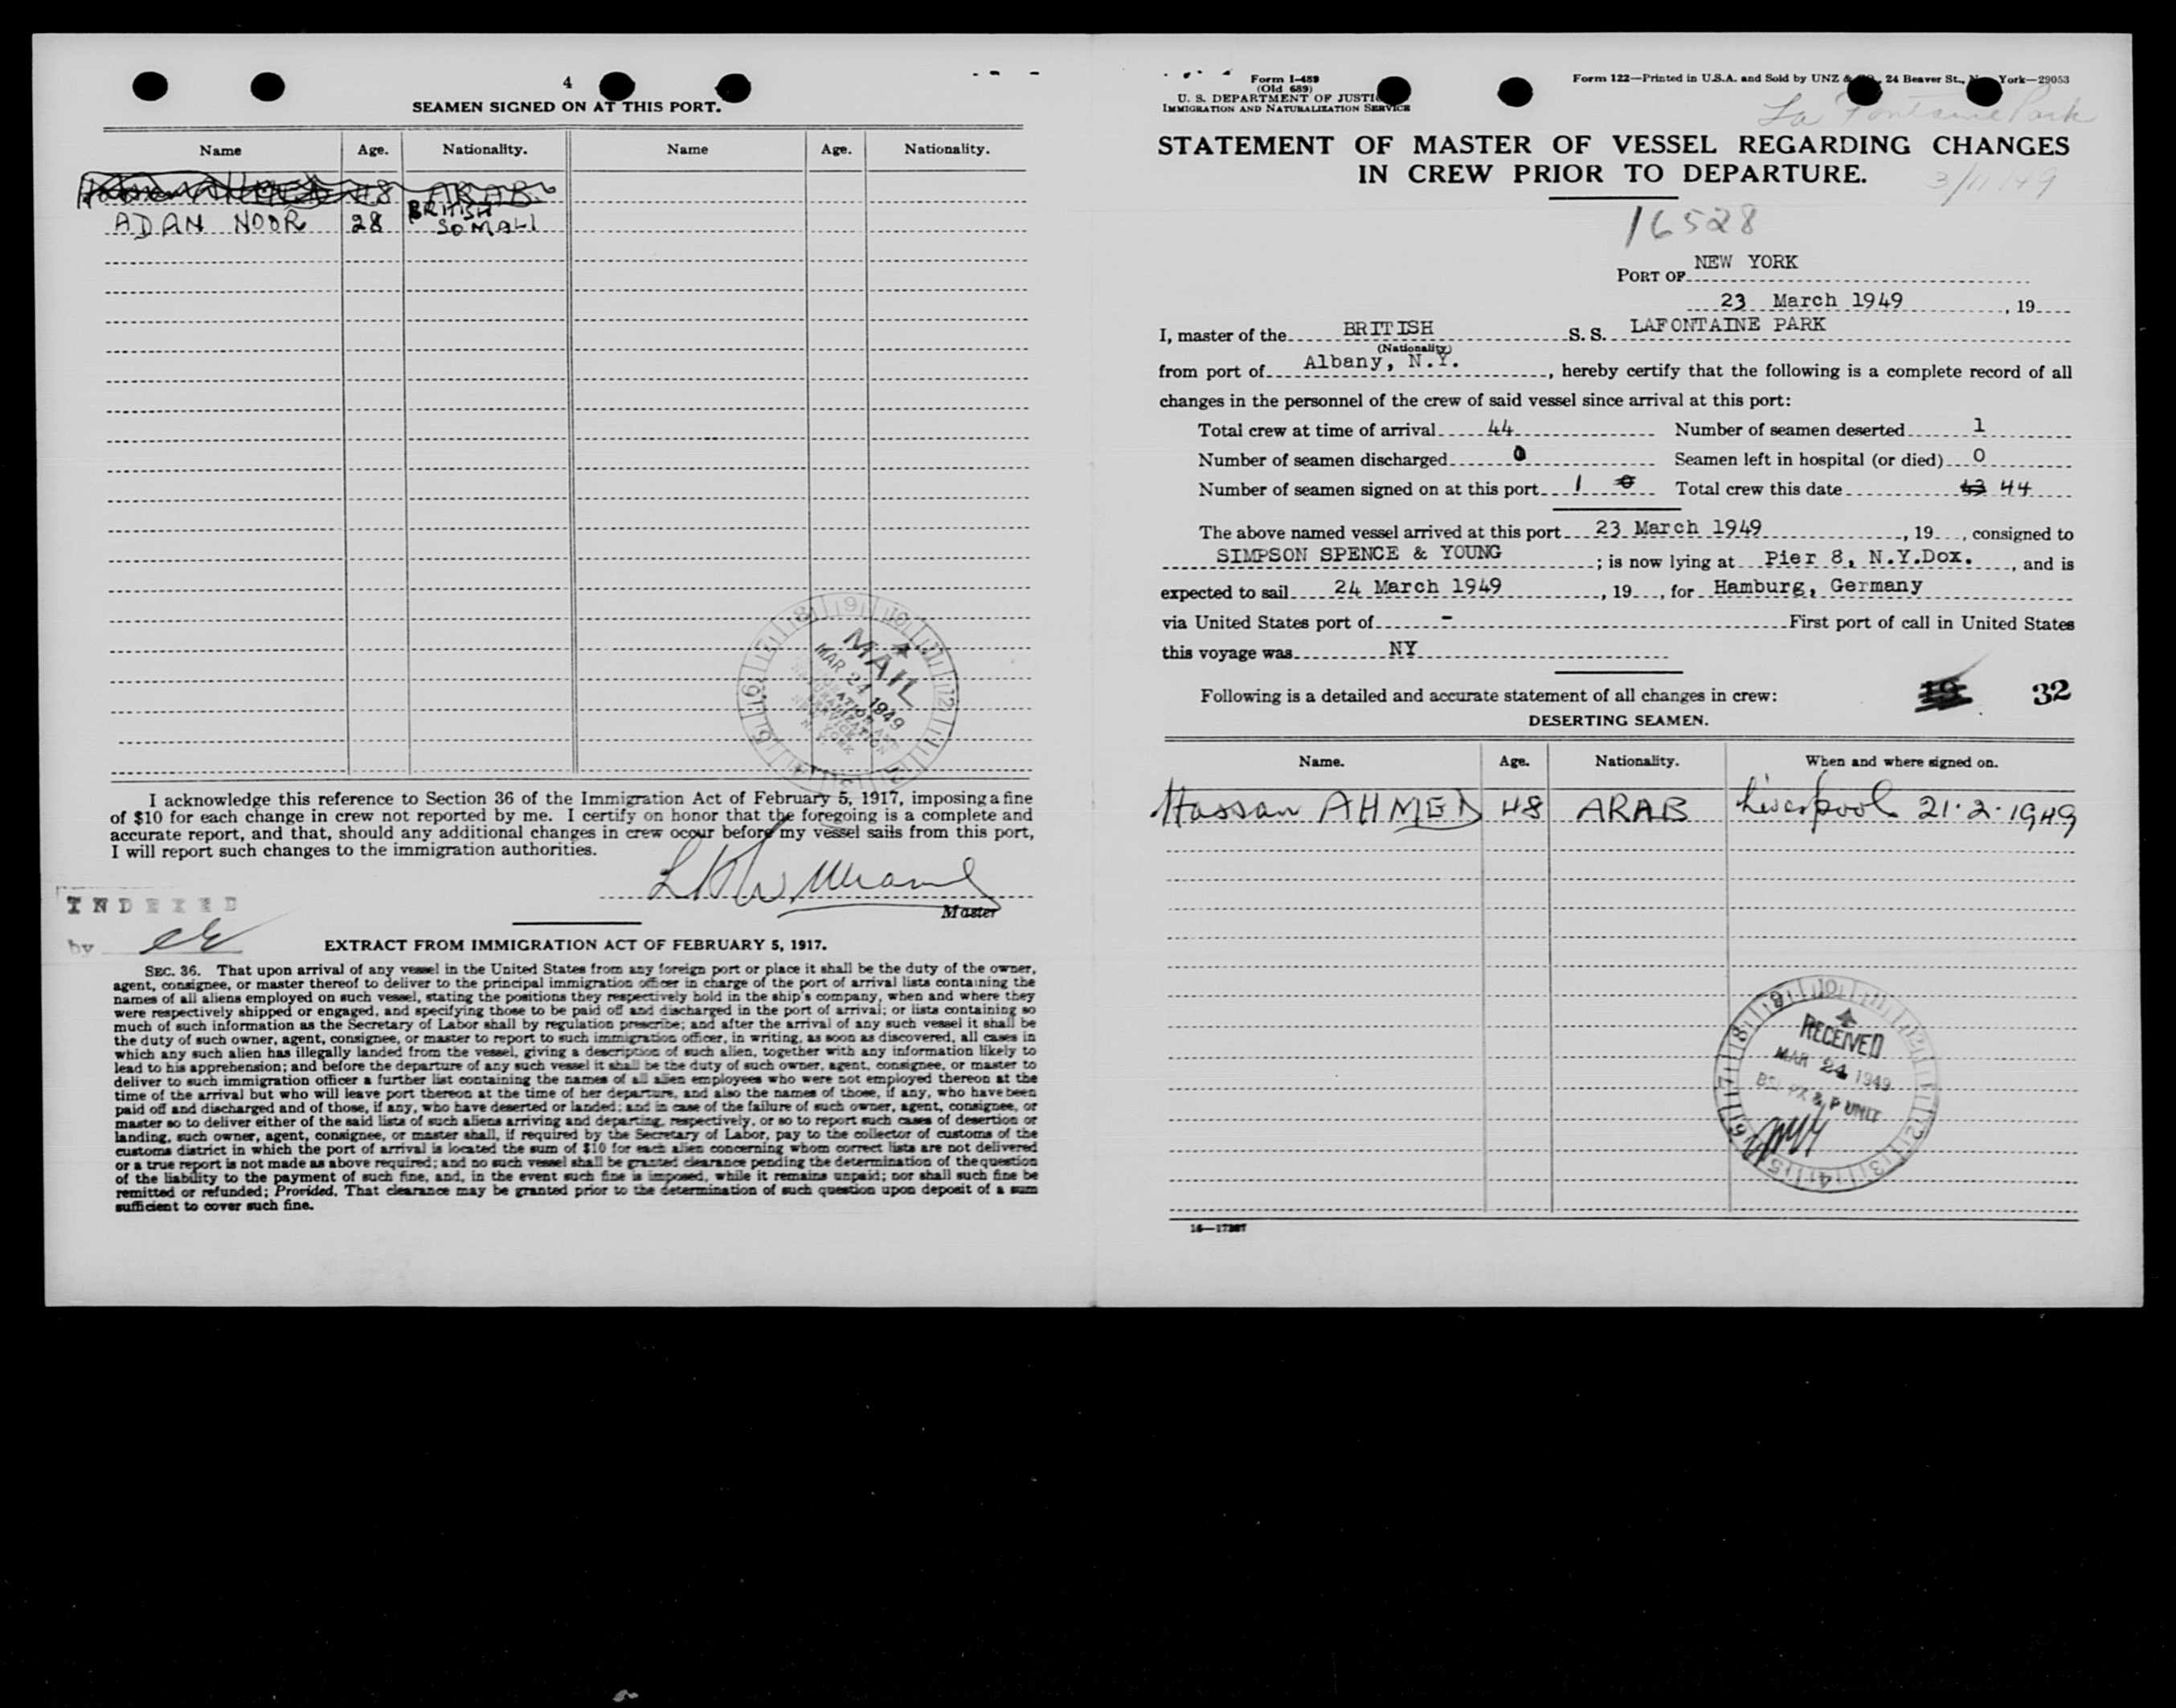 4
SEAMEN SIGNED ON AT THIS PORT.
Name Age. Nationality. Name Age. Nationality.
Hassan AHMED 48 ARAB
ADAN NOOR 28 BRITISH SOMALI
MAIL
MAR 24 1949
I acknowledge this reference to Section 36 of the Immigration Act of February 5, 1917, imposing a fine
of $10 for each change in crew not reported by me. I certify on honor that the foregoing is a complete and
accurate report, and that, should any additional changes in crew occur before my vessel sails from this port,
I will report such changes to the immigration authorities.
Master
INDEXED
by
EXTRACT FROM IMMIGRATION ACT OF FEBRUARY 5, 1917.
SEC. 36. That upon arrival of any vessel in the United States from any foreign port or place it shall be the duty of the owner,
agent, consignee, or master thereof to deliver to the principal immigration officer in charge of the port of arrival lists containing the
names of all aliens employed on such vessel, stating the positions they respectively hold in the ship's company, when and where they
were respectively shipped or engaged, and specifying those to be paid off and discharged in the port of arrival; or lists containing so
much of such information as the Secretary of Labor shall by regulation prescribe; and after the arrival of any such vessel it shall be
the duty of such owner, agent, consignee, or master to report to such immigration officer, in writing, as soon as discovered, all cases in
which any such alien has illegally landed from the vessel, giving a description of such alien, together with any information likely to
lead to his apprehension; and before the departure of any such vessel it shall be the duty of such owner, agent, consignee, or master to
deliver to such immigration officer a further list containing the names of all alien employees who were not employed thereon at the
time of the arrival but who will leave port thereon at the time of her departure, and also the names of those, if any, who have been
paid off and discharged and of those, if any, who have deserted or landed; and in case of the failure of such owner, agent, consignee, or
master so to deliver either of the said lists of such aliens arriving and departing, respectively, or so to report such cases of desertion or
landing, such owner, agent, consignee, or master shall, if required by the Secretary of Labor, pay to the collector of customs of the
customs district in which the port of arrival is located the sum of $10 for each alien concerning whom correct lists are not delivered
or a true report is not made as above required; and no such vessel shall be granted clearance pending the determination of the question
of the liability to the payment of such fine, and, in the event such fine is imposed, while it remains unpaid; nor shall such fine be
remitted or refunded; Provided, That clearance may be granted prior to the determination of such question upon deposit of a sum
sufficient to cover such fine.
Form I-489
(Old 689)
U. S. DEPARTMENT OF JUSTICE
IMMIGRATION AND NATURALIZATION SERVICE
Form 122—Printed in U.S.A. and Sold by UNZ & CO., 24 Beaver St., New York—29053
La Fontaine Park
STATEMENT OF MASTER OF VESSEL REGARDING CHANGES
IN CREW PRIOR TO DEPARTURE.
3/11/49
16528
PORT OF NEW YORK
23 March 1949, 19
I, master of the BRITISH S. S. LAFONTAINE PARK
(Nationality)
from port of Albany, N.Y., hereby certify that the following is a complete record of all
changes in the personnel of the crew of said vessel since arrival at this port:
Total crew at time of arrival 44 Number of seamen deserted 1
Number of seamen discharged 0 Seamen left in hospital (or died) 0
Number of seamen signed on at this port 1 0 Total crew this date 43 44
The above named vessel arrived at this port 23 March 1949, 19, consigned to
SIMPSON SPENCE & YOUNG; is now lying at Pier 8, N.Y.Dox., and is
expected to sail 24 March 1949, 19, for Hamburg, Germany
via United States port of - First port of call in United States
this voyage was NY
Following is a detailed and accurate statement of all changes in crew: 19 32
DESERTING SEAMEN.
Name. Age. Nationality. When and where signed on.
Hassan AHMED 48 ARAB Liverpool 21.2.1949
RECEIVED
MAR 24 1949
& P UNIT
16—17267